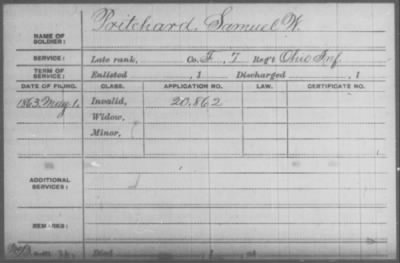 NAME OF SOLDIER: Pritchard, Samuel W.
SERVICE: Late rank, Co. F, 7 Reg't Ohio Inf.
TERM OF SERVICE: Enlisted , 1 Discharged , 1
DATE OF FILING. CLASS. APPLICATION NO. LAW. CERTIFICATE NO.
1863, May 1. Invalid, 20.862
Widow,
Minor,
ADDITIONAL SERVICES:
REMARKS:
Died , 1 , at